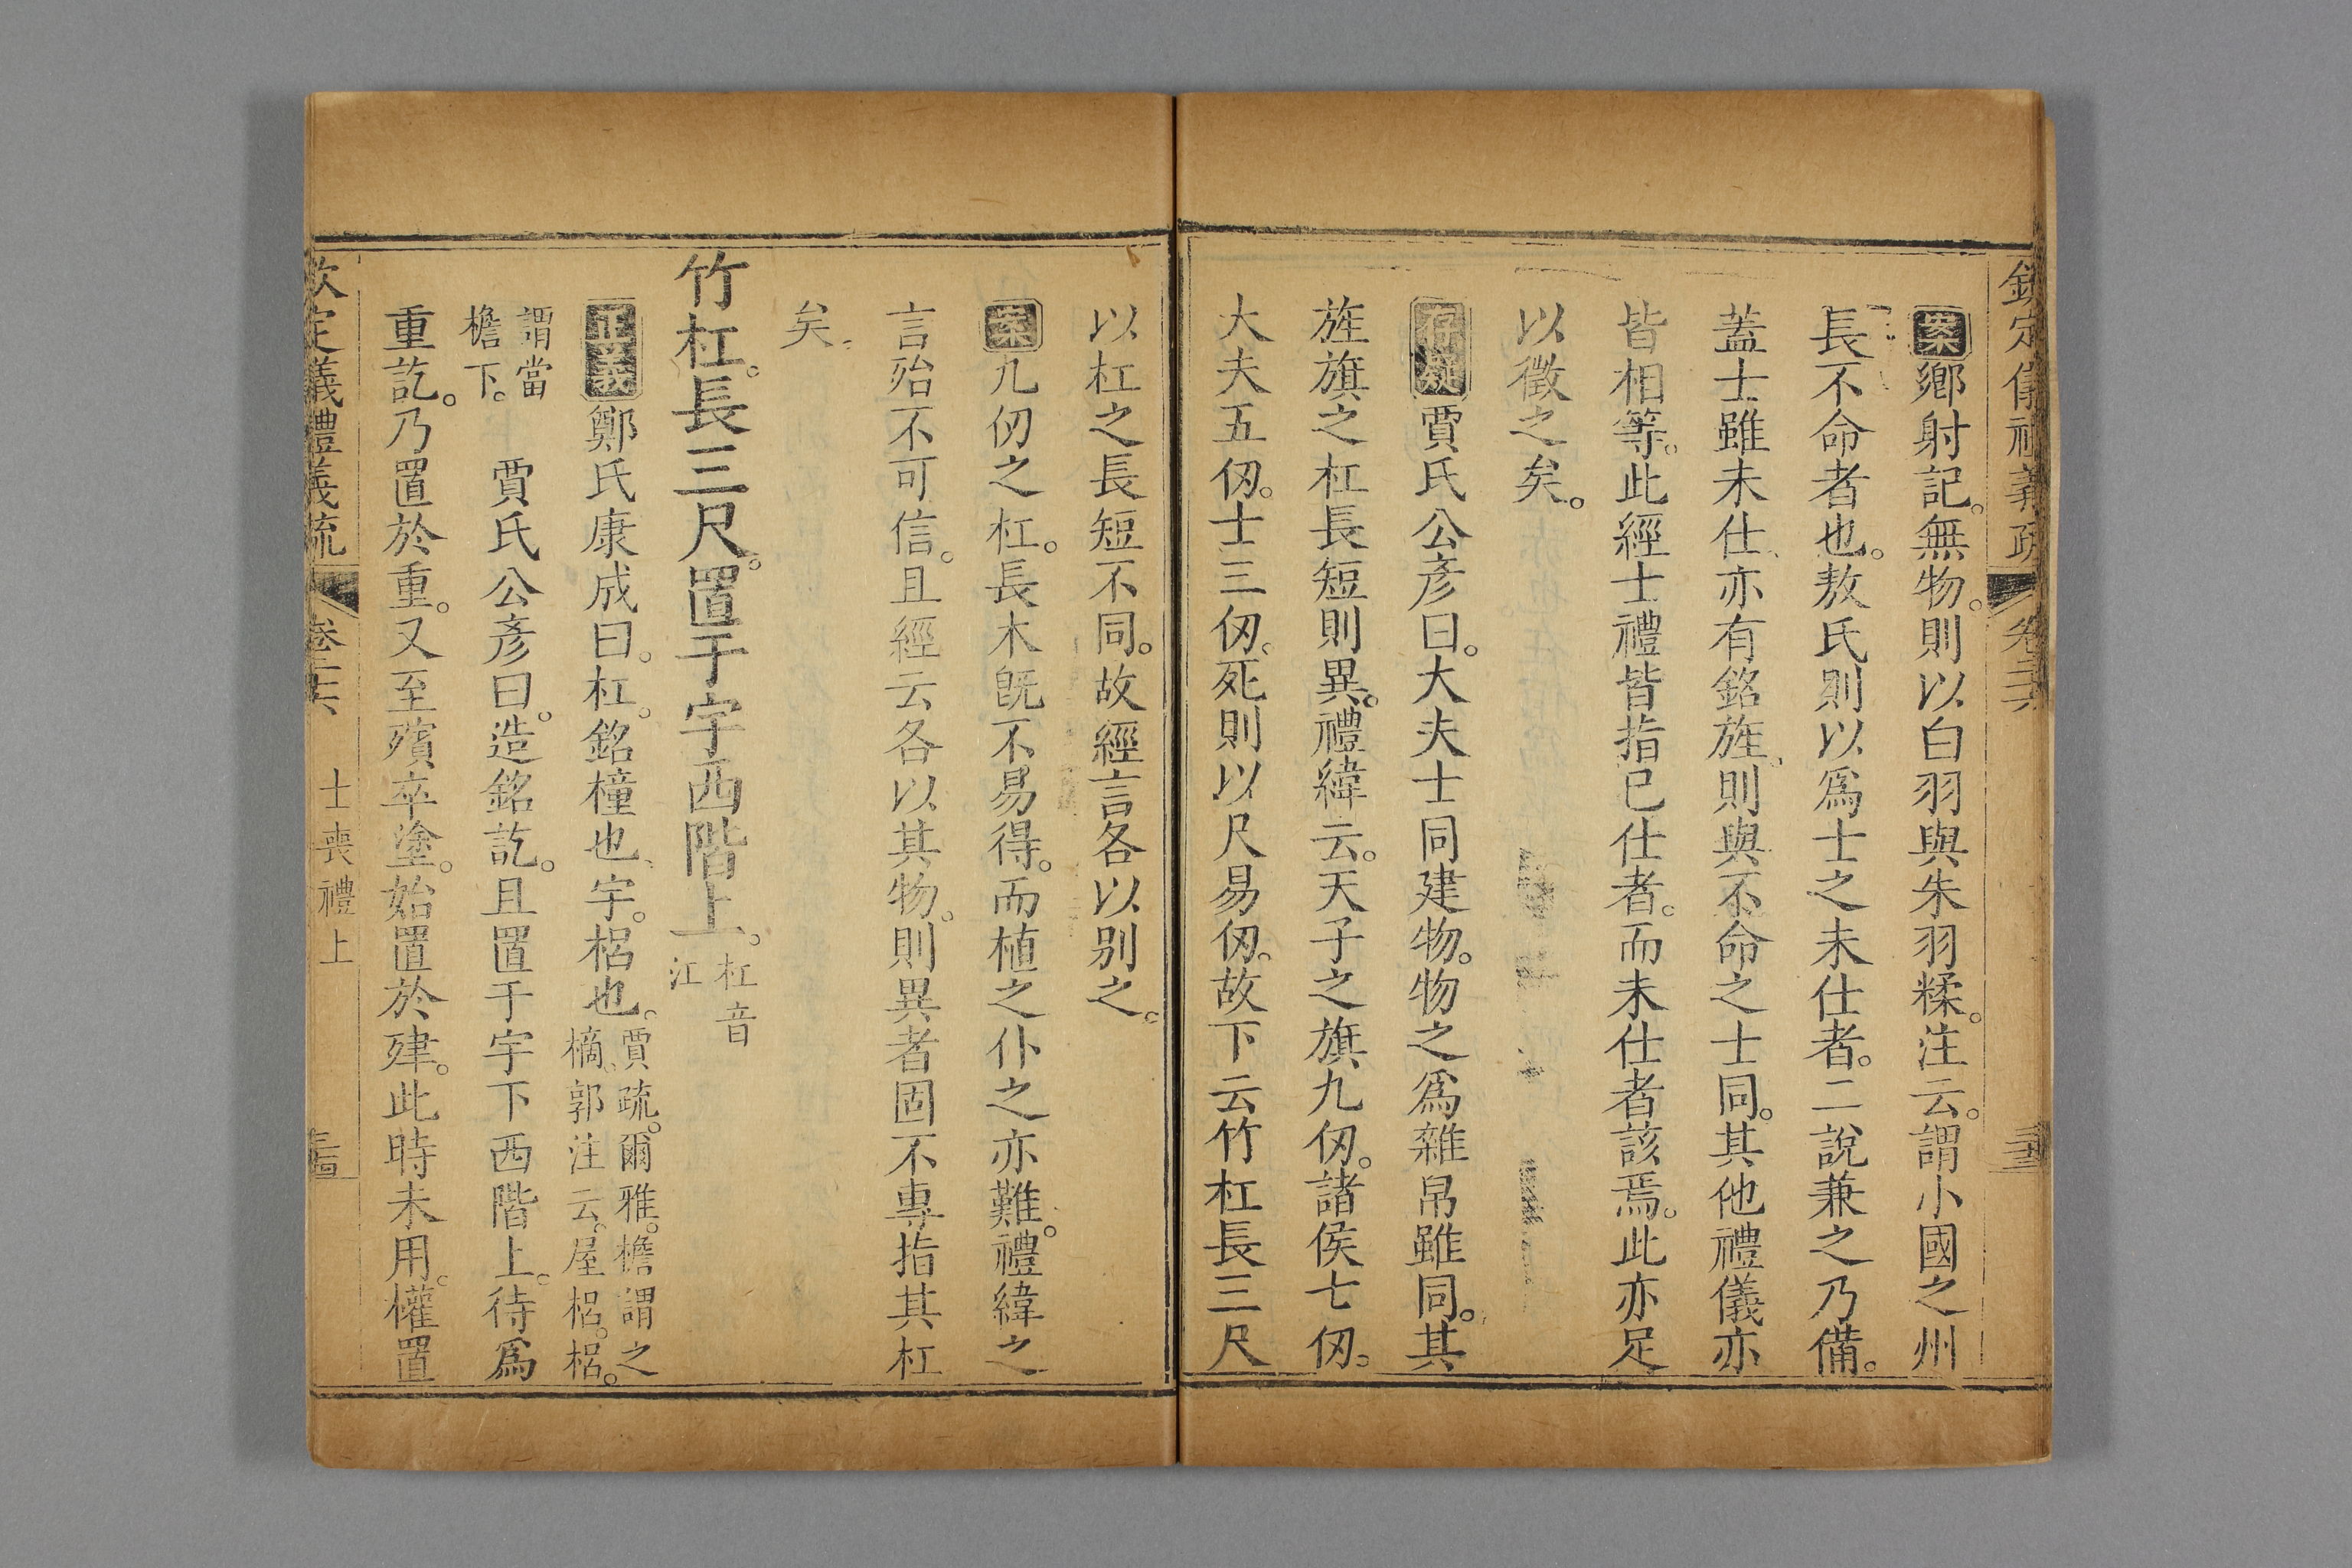 欽定儀禮義疏 卷二十六
案鄉射記。無物。則以白羽與朱羽糅。注云。謂小國之州
長不命者也。敖氏則以爲士之未仕者。二說兼之乃備。
蓋士雖未仕、亦有銘旌、則與不命之士同。其他禮儀亦
皆相等。此經士禮皆指已仕者。而未仕者該焉。此亦足
以徵之矣。
存疑賈氏公彥曰。大夫士同建物。物之爲雜帛雖同。其
旌旗之杠長短則異。禮緯云。天子之旗九仞。諸侯七仞。
大夫五仞。士三仞。死則以尺易仞。故下云竹杠長三尺
以杠之長短不同。故經言各以別之。
案九仞之杠。長木旣不易得。而植之仆之亦難。禮緯之
言殆不可信。且經云各以其物。則異者固不專指其杠
矣。
竹杠。長三尺。置于宇西階上。杠音
江
正義鄭氏康成曰。杠。銘橦也、宇。梠也。賈疏。爾雅。檐謂之
樀、郭注云。屋梠。梠。
謂當
檐下。賈氏公彥曰。造銘訖。且置于宇下西階上。待爲
重訖。乃置於重。又至殯卒塗。始置於肂。此時未用。權置
欽定儀禮義疏 卷二十六 士喪禮上